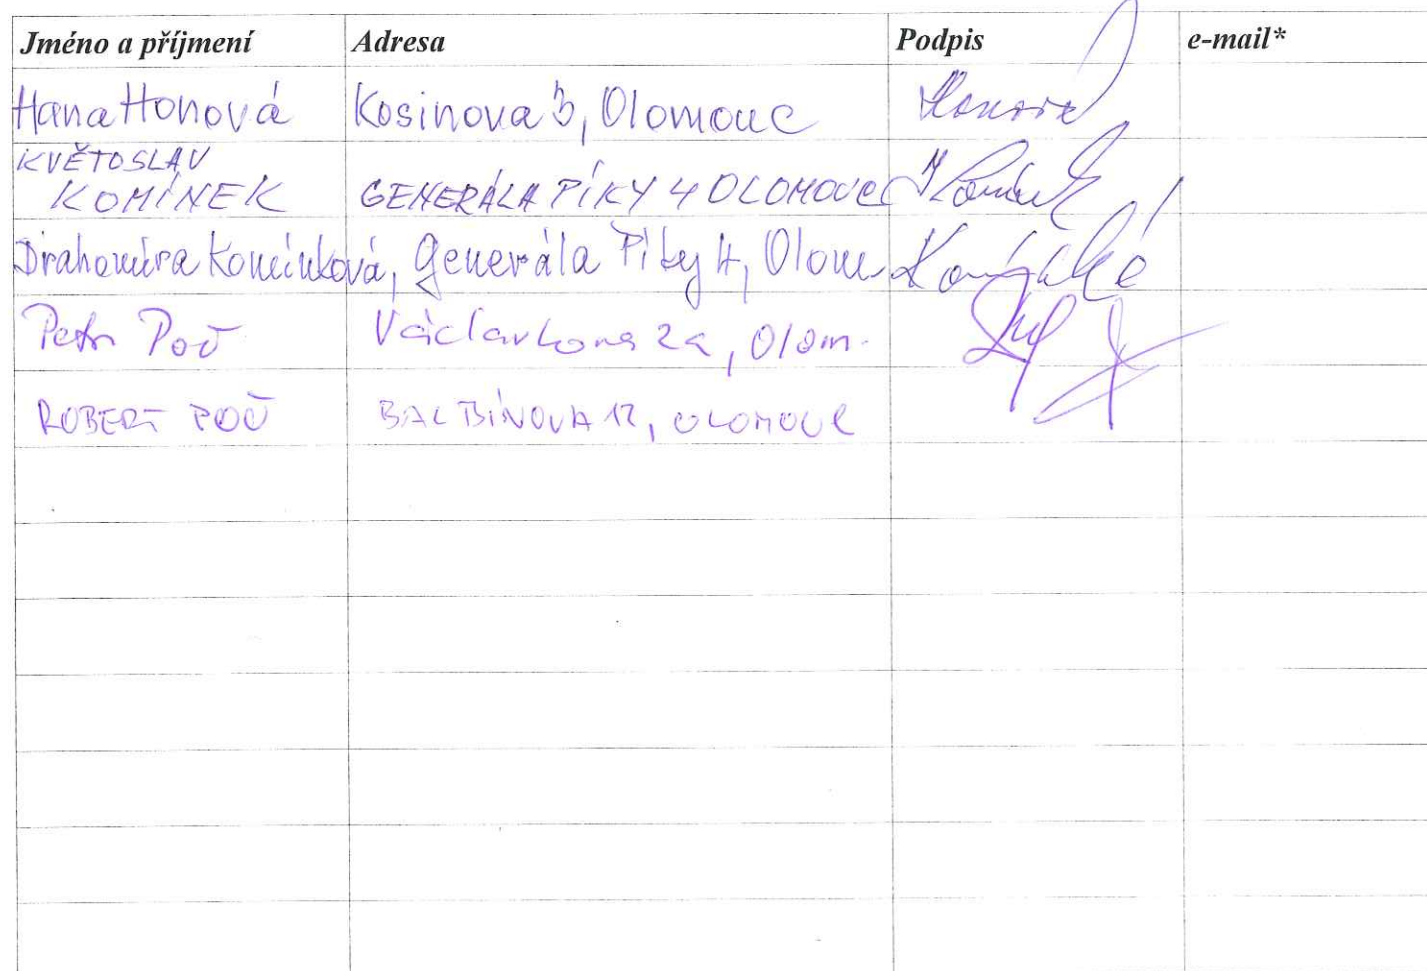 Jméno a příjmení Adresa Podpis e-mail*
Hana Honová Kosinova 3, Olomouc Honová
KVĚTOSLAV
KOMÍNEK GENERÁLA PÍKY 4 OLOMOUC Komínek
Drahomíra Komínková, Generála Píky 4, Olom Komínková
Petr Poč Václavkova 2a, Olom.
ROBERT POČ BALBÍNOVA 12, OLOMOUC